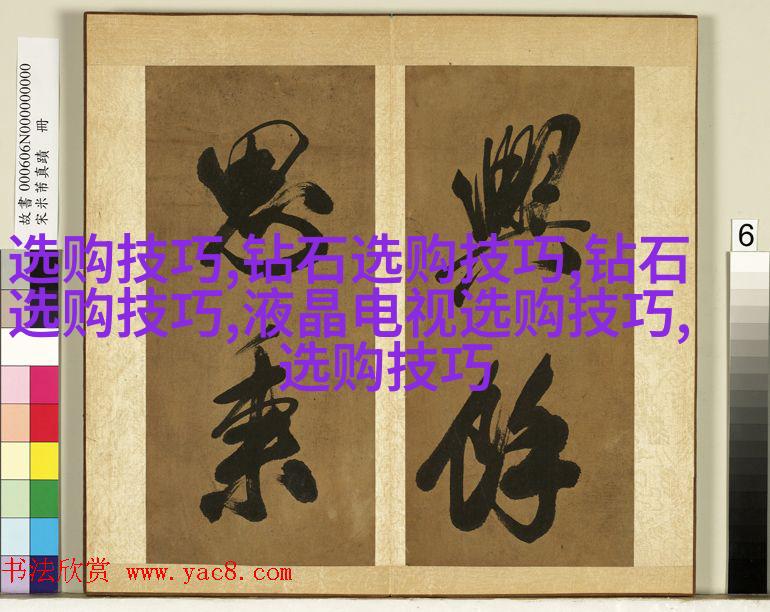 故書 000606N000000000
宋米芾真蹟 冊
興餘
思秉
选购技巧,钻石选购技巧,钻石
选购技巧,液晶电视选购技巧,
选购技巧
6
书法欣赏 www.yac8.com